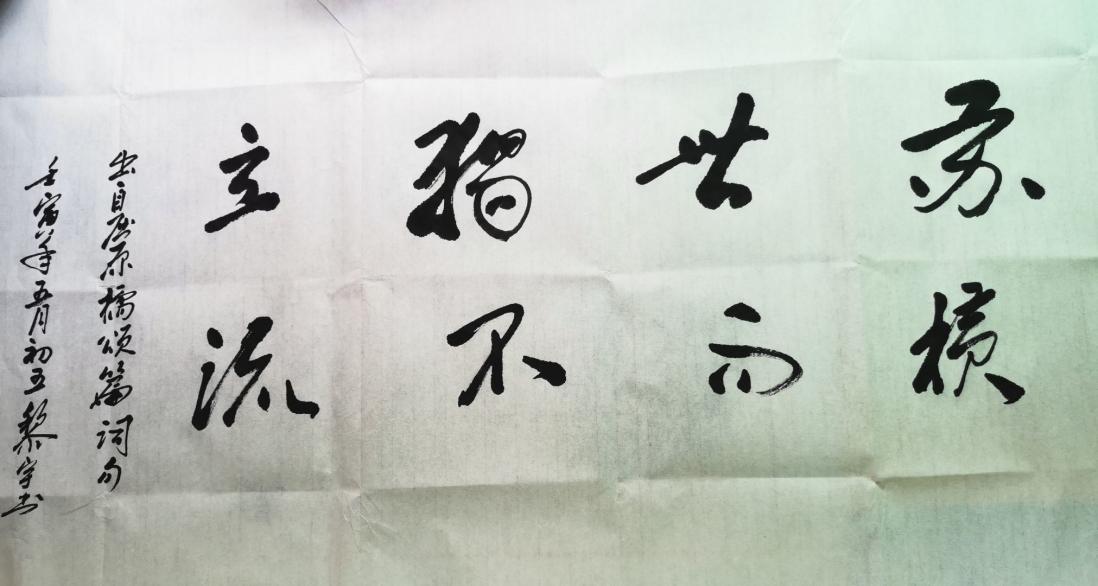 苏世獨立
横而不流
出自屈原橘颂篇词句
壬寅年五月初五黎宇书